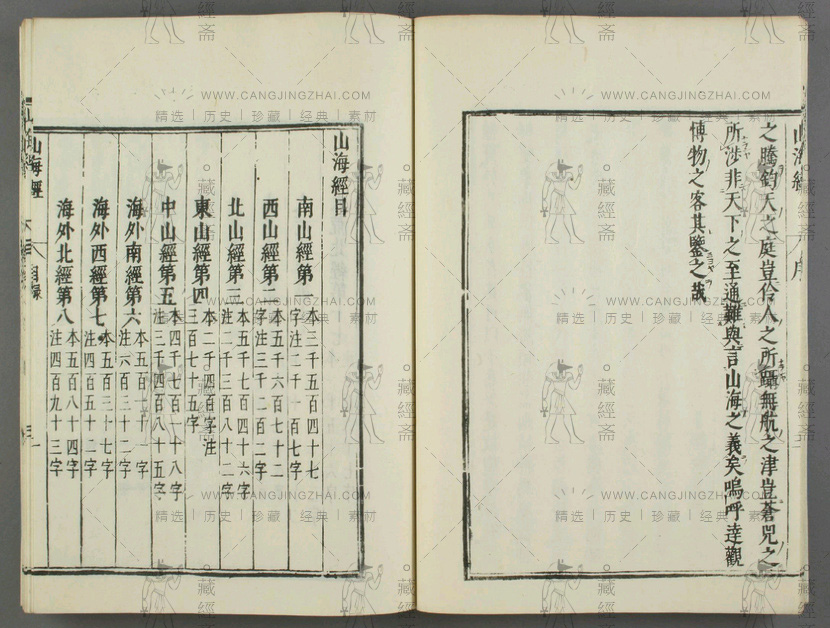 之騰鈞天之庭豈伶人之所躡無航之津豈蒼兕之
所涉非天下之至通難與言山海之義矣嗚呼達觀
博物之客其鑒之哉
山海經目
南山經第一 本三千五百四十七字注二千一百七字
西山經第二 本五千六百七十二字注三千二百二字
北山經第三 本五千七百四十六字注二千三百八十二字
東山經第四 本二千四百字注三百七十五字
中山經第五 本四千七百一十八字注三千四百八十五字
海外南經第六 本五百一十一字注六百三十二字
海外西經第七 本五百三十七字注四百五十二字
海外北經第八 本五百八十四字注四百九十三字
山海經 目録
WWW.CANGJINGZHAI.COM
精选 | 历史 | 珍藏 | 经典 | 素材
藏經斋